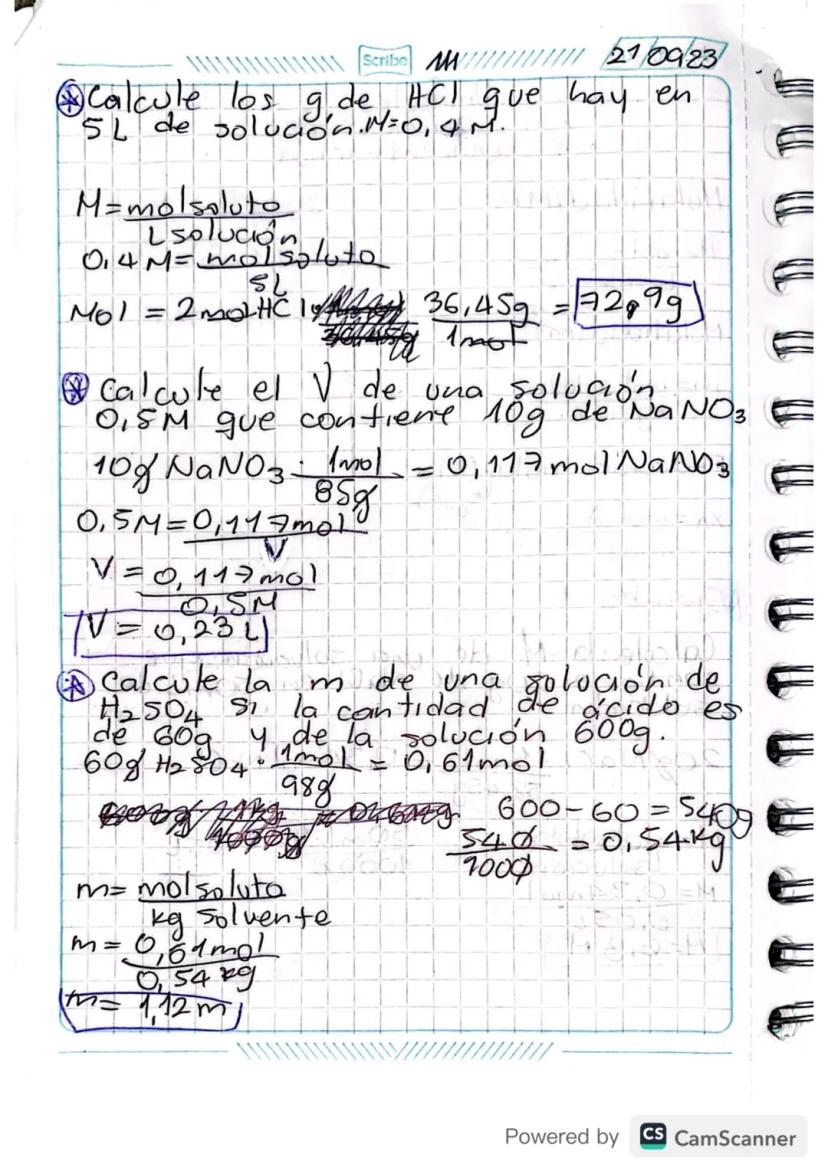 Scribe 21/09/23
Calcule los g de HCl que hay en
5L de solución. M=0,4 M.
M= mol soluto
L solución
0,4 M= mol soluto
5L
Mol = 2 mol HCl 36,45g = 72,9g
1 mol
Calcule el V de una solución
0,5M que contiene 10g de NaNO3
10g NaNO3 · 1mol = 0,117 mol NaNO3
85g
0,5M= 0,117mol
V
V = 0,117 mol
0,5M
V = 0,23 L
Calcule la m de una solución de
H2SO4 si la cantidad de ácido es
de 60g y de la solución 600g.
60g H2SO4 · 1mol = 0,61mol
98g
600-60 = 540g
540 = 0,54kg
1000
m= mol soluto
kg solvente
m= 0,61mol
0,54 kg
m= 1,12 m
Powered by CS CamScanner